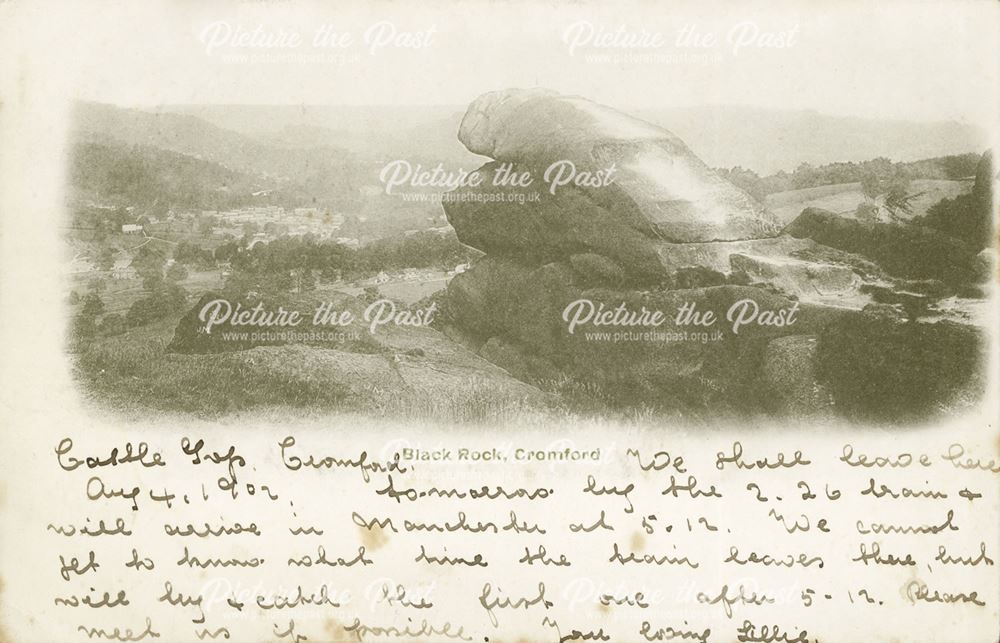 Picture the Past Picture the Past
www.picturethepast.org.uk www.picturethepast.org.uk
Picture the Past
www.picturethepast.org.uk
Picture the Past Picture the Past
www.picturethepast.org.uk www.picturethepast.org.uk
Black Rock, Cromford
Castle Top, Cromford. We shall leave here
Aug 4, 1902. to-morrow by the 2.26 train &
will arrive in Manchester at 5.12. We cannot
get to know what time the train leaves there, but
will try & catch the first one after 5-12. Please
meet us if possible. Your loving Lillie.
Picture the Past
www.picturethepast.org.uk
Picture the Past Picture the Past
www.picturethepast.org.uk www.picturethepast.org.uk